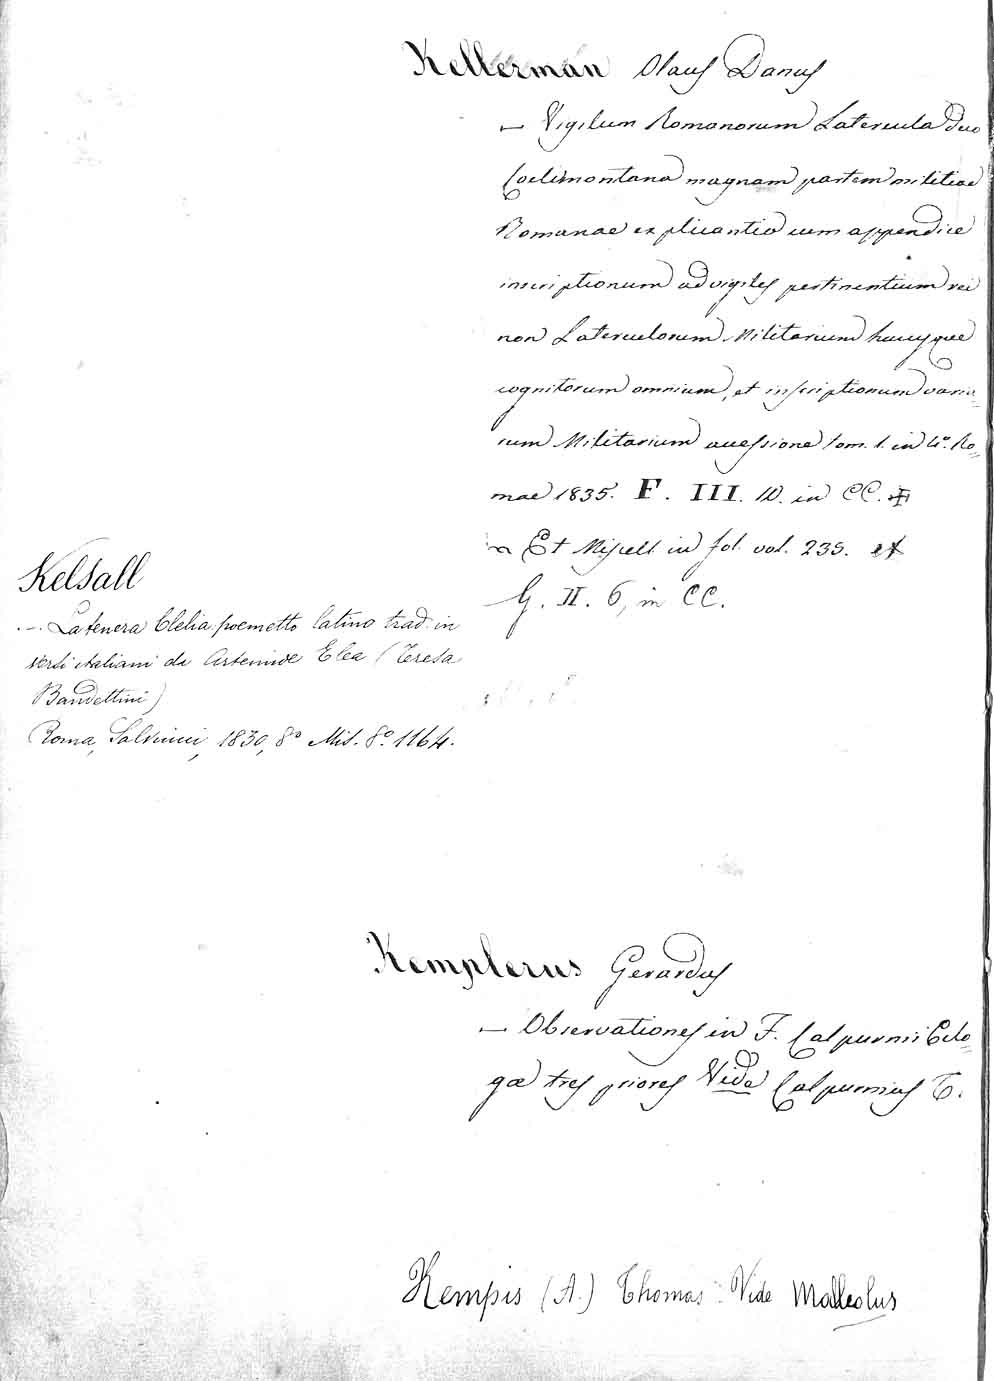 Kellerman Olaus Danus
— Vigilum Romanorum Latercula duo
Coelimontana magnam partem militiae
Romanae explicantia cum appendice
inscriptionum ad vigiles pertinentium rei
non Laterculorum Militarium hucusque
cognitorum omnium, et inscriptionum vario=
rum Militarium accessione tom. 1. in 4º. Ro=
mae 1835. F. III. 10. in CC. ✠
Et Miscell in fol. vol. 235. et
G. II. 6, in CC.
Kelsall
— La tenera Clelia, poemetto latino trad. in
versi italiani da Arteniice Elea (Teresa
Bandettini)
Roma, Salviucci, 1830, 8º Mis. 8º. 1164.
Kemplerus Gerardus
— Observationes in F. Calpurnii Eclo=
gæ tres priores Vide Calpurnius T.
Kempis (A.) Thomas : Vide Malleolus